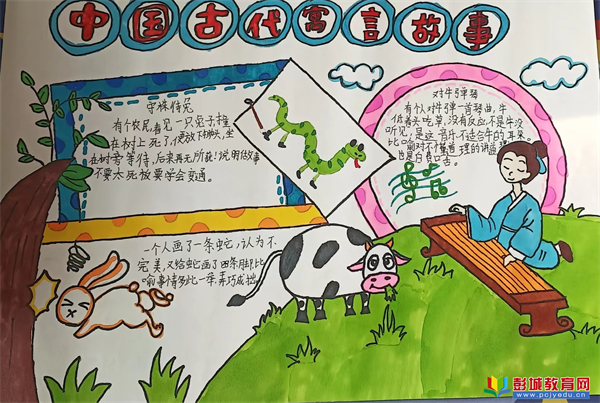 中国古代寓言故事
守株待兔
有个农民,看见一只兔子撞
在树上死了,便放下锄头,坐
在树旁等待,后来再无所获!说明做事
不要太死板要学会变通。
对牛弹琴
有个人对牛弹一首琴曲,牛
低着头吃草,没有反应,不是牛没
听见,是这音乐不适合牛的耳朵。
比喻对不懂道理的讲道理
也是白费口舌。
一个人画了一条蛇,认为不
完美,又给蛇画了四条脚,比
喻事情多此一举,弄巧成拙。
彭城教育网
www.pcjyedu.cn